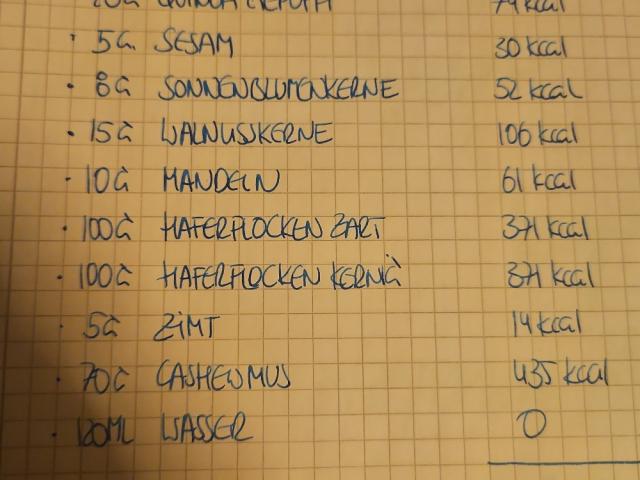 20G QUINOA GEPUFFT 74 kcal
· 5G SESAM 30 kcal
· 8G SONNENBLUMENKERNE 52 kcal
· 15G WALNUSSKERNE 106 kcal
· 10G MANDELN 61 kcal
· 100G HAFERFLOCKEN ZART 371 kcal
· 100G HAFERFLOCKEN KERNIG 371 kcal
· 5G ZIMT 14 kcal
· 70G CASHEWMUS 435 kcal
· 120ML WASSER 0